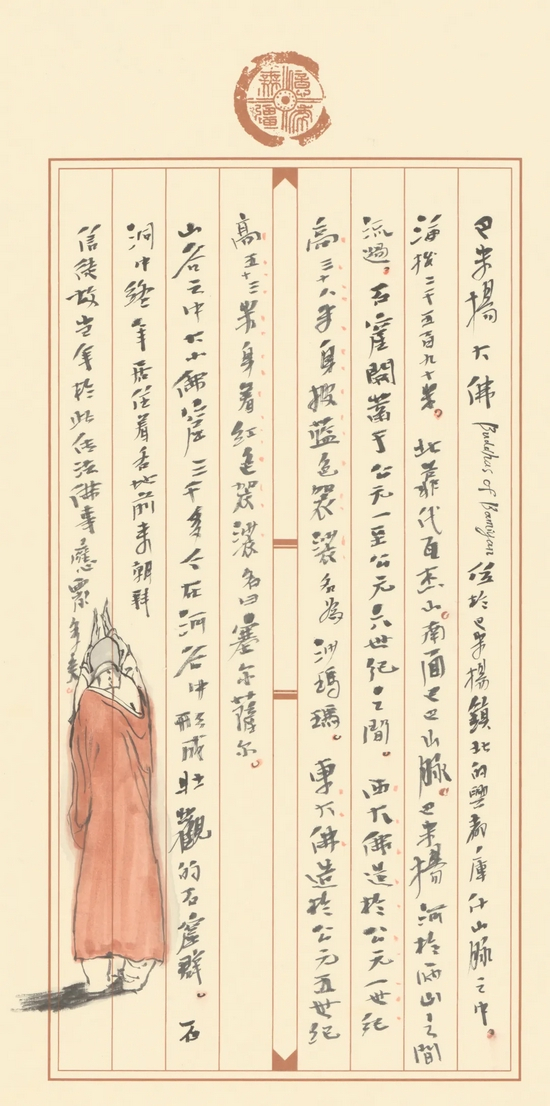 巴米揚大佛 Buddhas of Bamiyan 位於巴米揚鎮北的興都庫什山脈之中。
海拔二千五百九十米。北靠代瓦杰山南面巴巴山脈。巴米揚河於兩山之間
流過。石窟開鑿于公元一至公元六世紀之間。西大佛造於公元一世紀
高三十八米身披藍色袈裟名為沙瑪瑪。東大佛造於公元五世紀
高五十三米身着紅色袈裟名曰塞尔薩尔。
山谷之中大小佛窟三千多今在河谷中形成壯觀的石窟群。石
洞中經年居住着各地前来朝拜
信徒故当年於此傳法佛事應